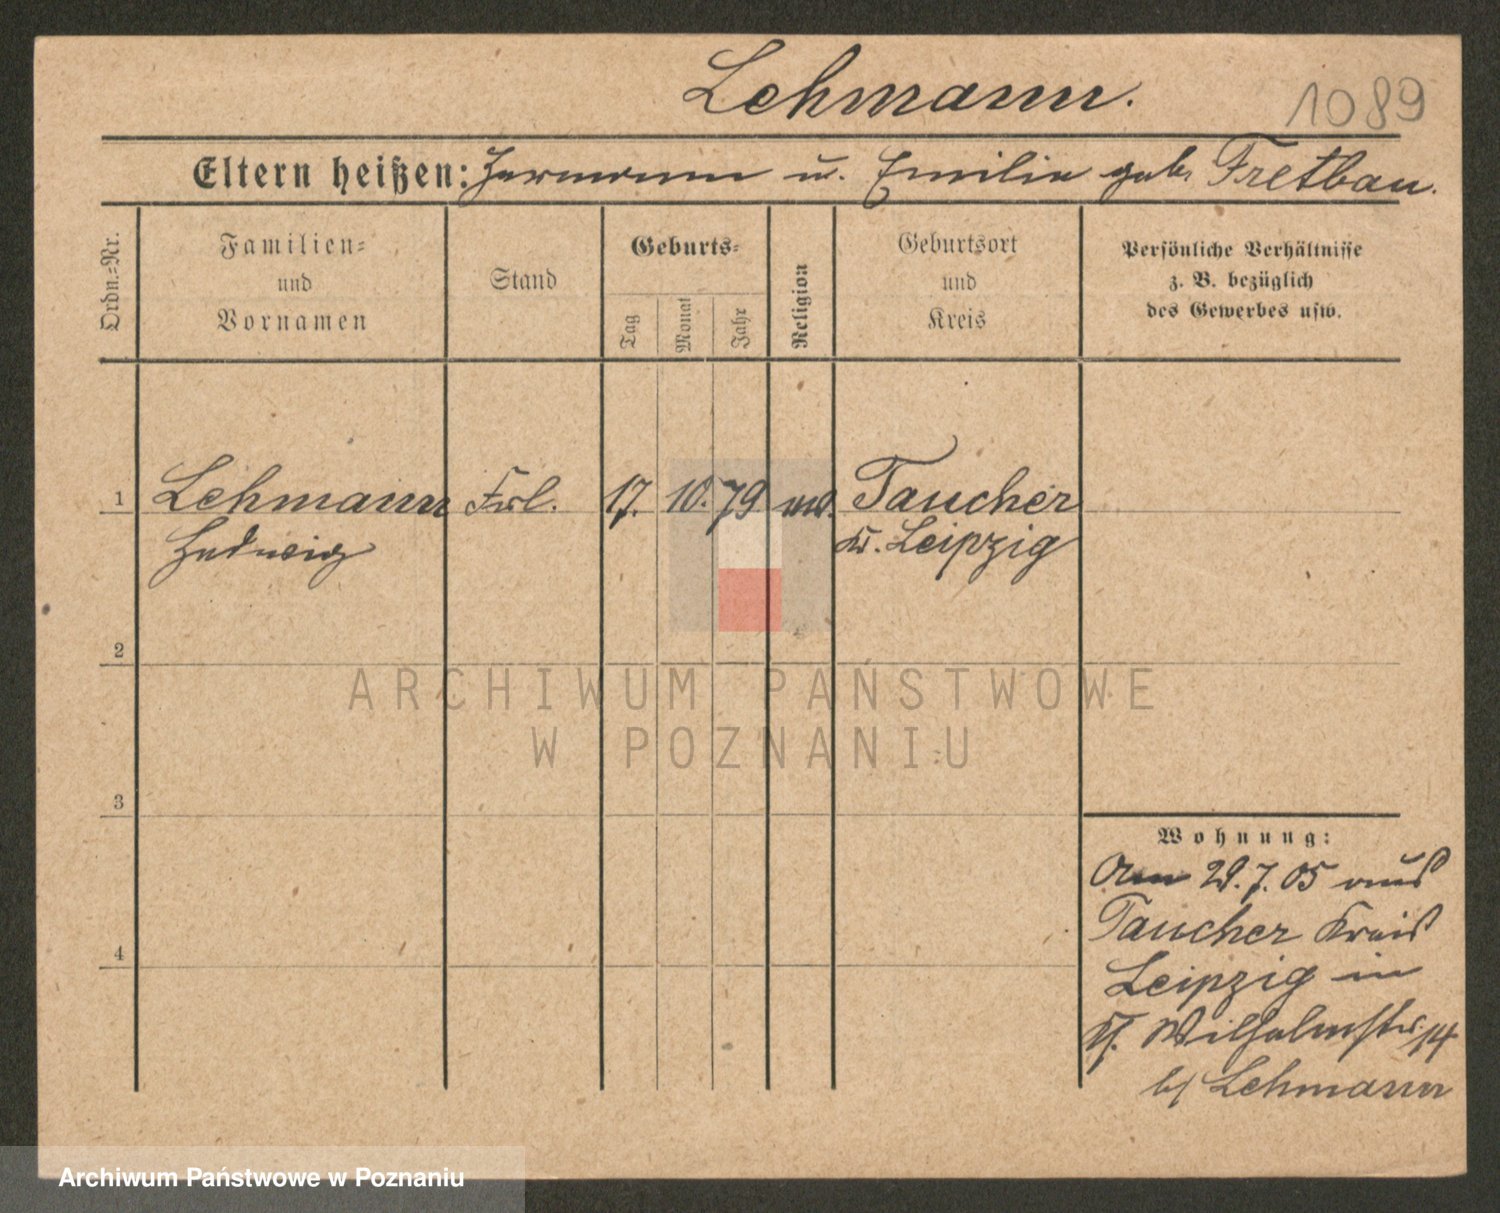 Lehmann.
1089
Eltern heißen: Hermann u. Emilie geb. Fretbau.
Ordn.=Nr.
Familien=
und
Vornamen
Stand
Geburts=
Tag
Monat
Jahr
Religion
Geburtsort
und
Kreis
Persönliche Verhältnisse
z. B. bezüglich
des Gewerbes usw.
1 Lehmann Frl. 17. 10. 79 Taucher
Hedwig Kr. Leipzig
2
ARCHIWUM PAŃSTWOWE
W POZNANIU
3
Wohnung:
Am 29.7.05 aus
Taucher Kreis
4
Leipzig in
Wilhelmstr. 14
b/ Lehmann
Archiwum Państwowe w Poznaniu